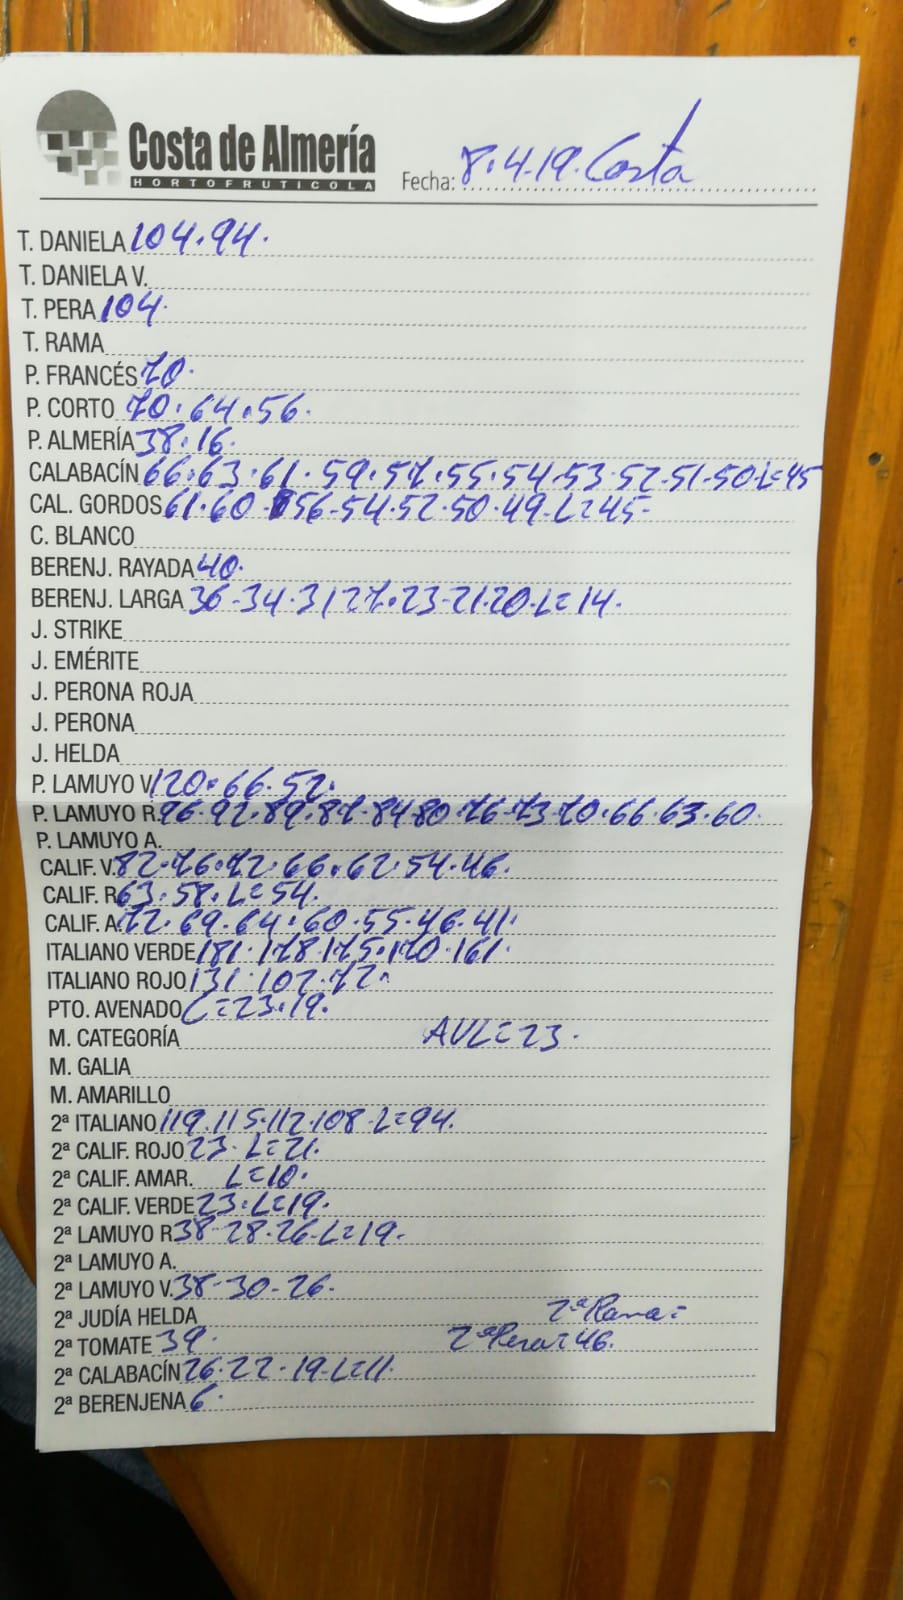 Costa de Almería
HORTOFRUTICOLA
Fecha: 8.4.19. Costa
T. DANIELA 104.94.
T. DANIELA V.
T. PERA 104.
T. RAMA
P. FRANCÉS 70.
P. CORTO 70.64.56.
P. ALMERÍA 38.16.
CALABACÍN 66.63.61.59.57.55.54.53.52-51-50-L=45
CAL. GORDOS 61.60-56-54-52-50-49-L=45-
C. BLANCO
BERENJ. RAYADA 40.
BERENJ. LARGA 36-34.31 27.23-21.20.L=14.
J. STRIKE
J. EMÉRITE
J. PERONA ROJA
J. PERONA
J. HELDA
P. LAMUYO V. 120.66.52.
P. LAMUYO R. 96-92.89.87-84-80.76-73-70.66.63.60.
P. LAMUYO A.
CALIF. V. 82-76.72.66.62.54.46.
CALIF. R. 63.58.L=54.
CALIF. A. 72.69.64.60.55.46.41.
ITALIANO VERDE 181.178.175.170.161.
ITALIANO ROJO 131.102.72.
PTO. AVENADO C=23.19.
M. CATEGORÍA AVL=23.
M. GALIA
M. AMARILLO
2ª ITALIANO 119.115.112.108.L=94.
2ª CALIF. ROJO 23.L=21.
2ª CALIF. AMAR. L=10.
2ª CALIF. VERDE 23.L=19.
2ª LAMUYO R 38-28-26-L=19.
2ª LAMUYO A.
2ª LAMUYO V. 38-30-26.
2ª JUDÍA HELDA 2ª Rama=
2ª TOMATE 39. 2ª Pera=46.
2ª CALABACÍN 26.22.19-L=11.
2ª BERENJENA 6.